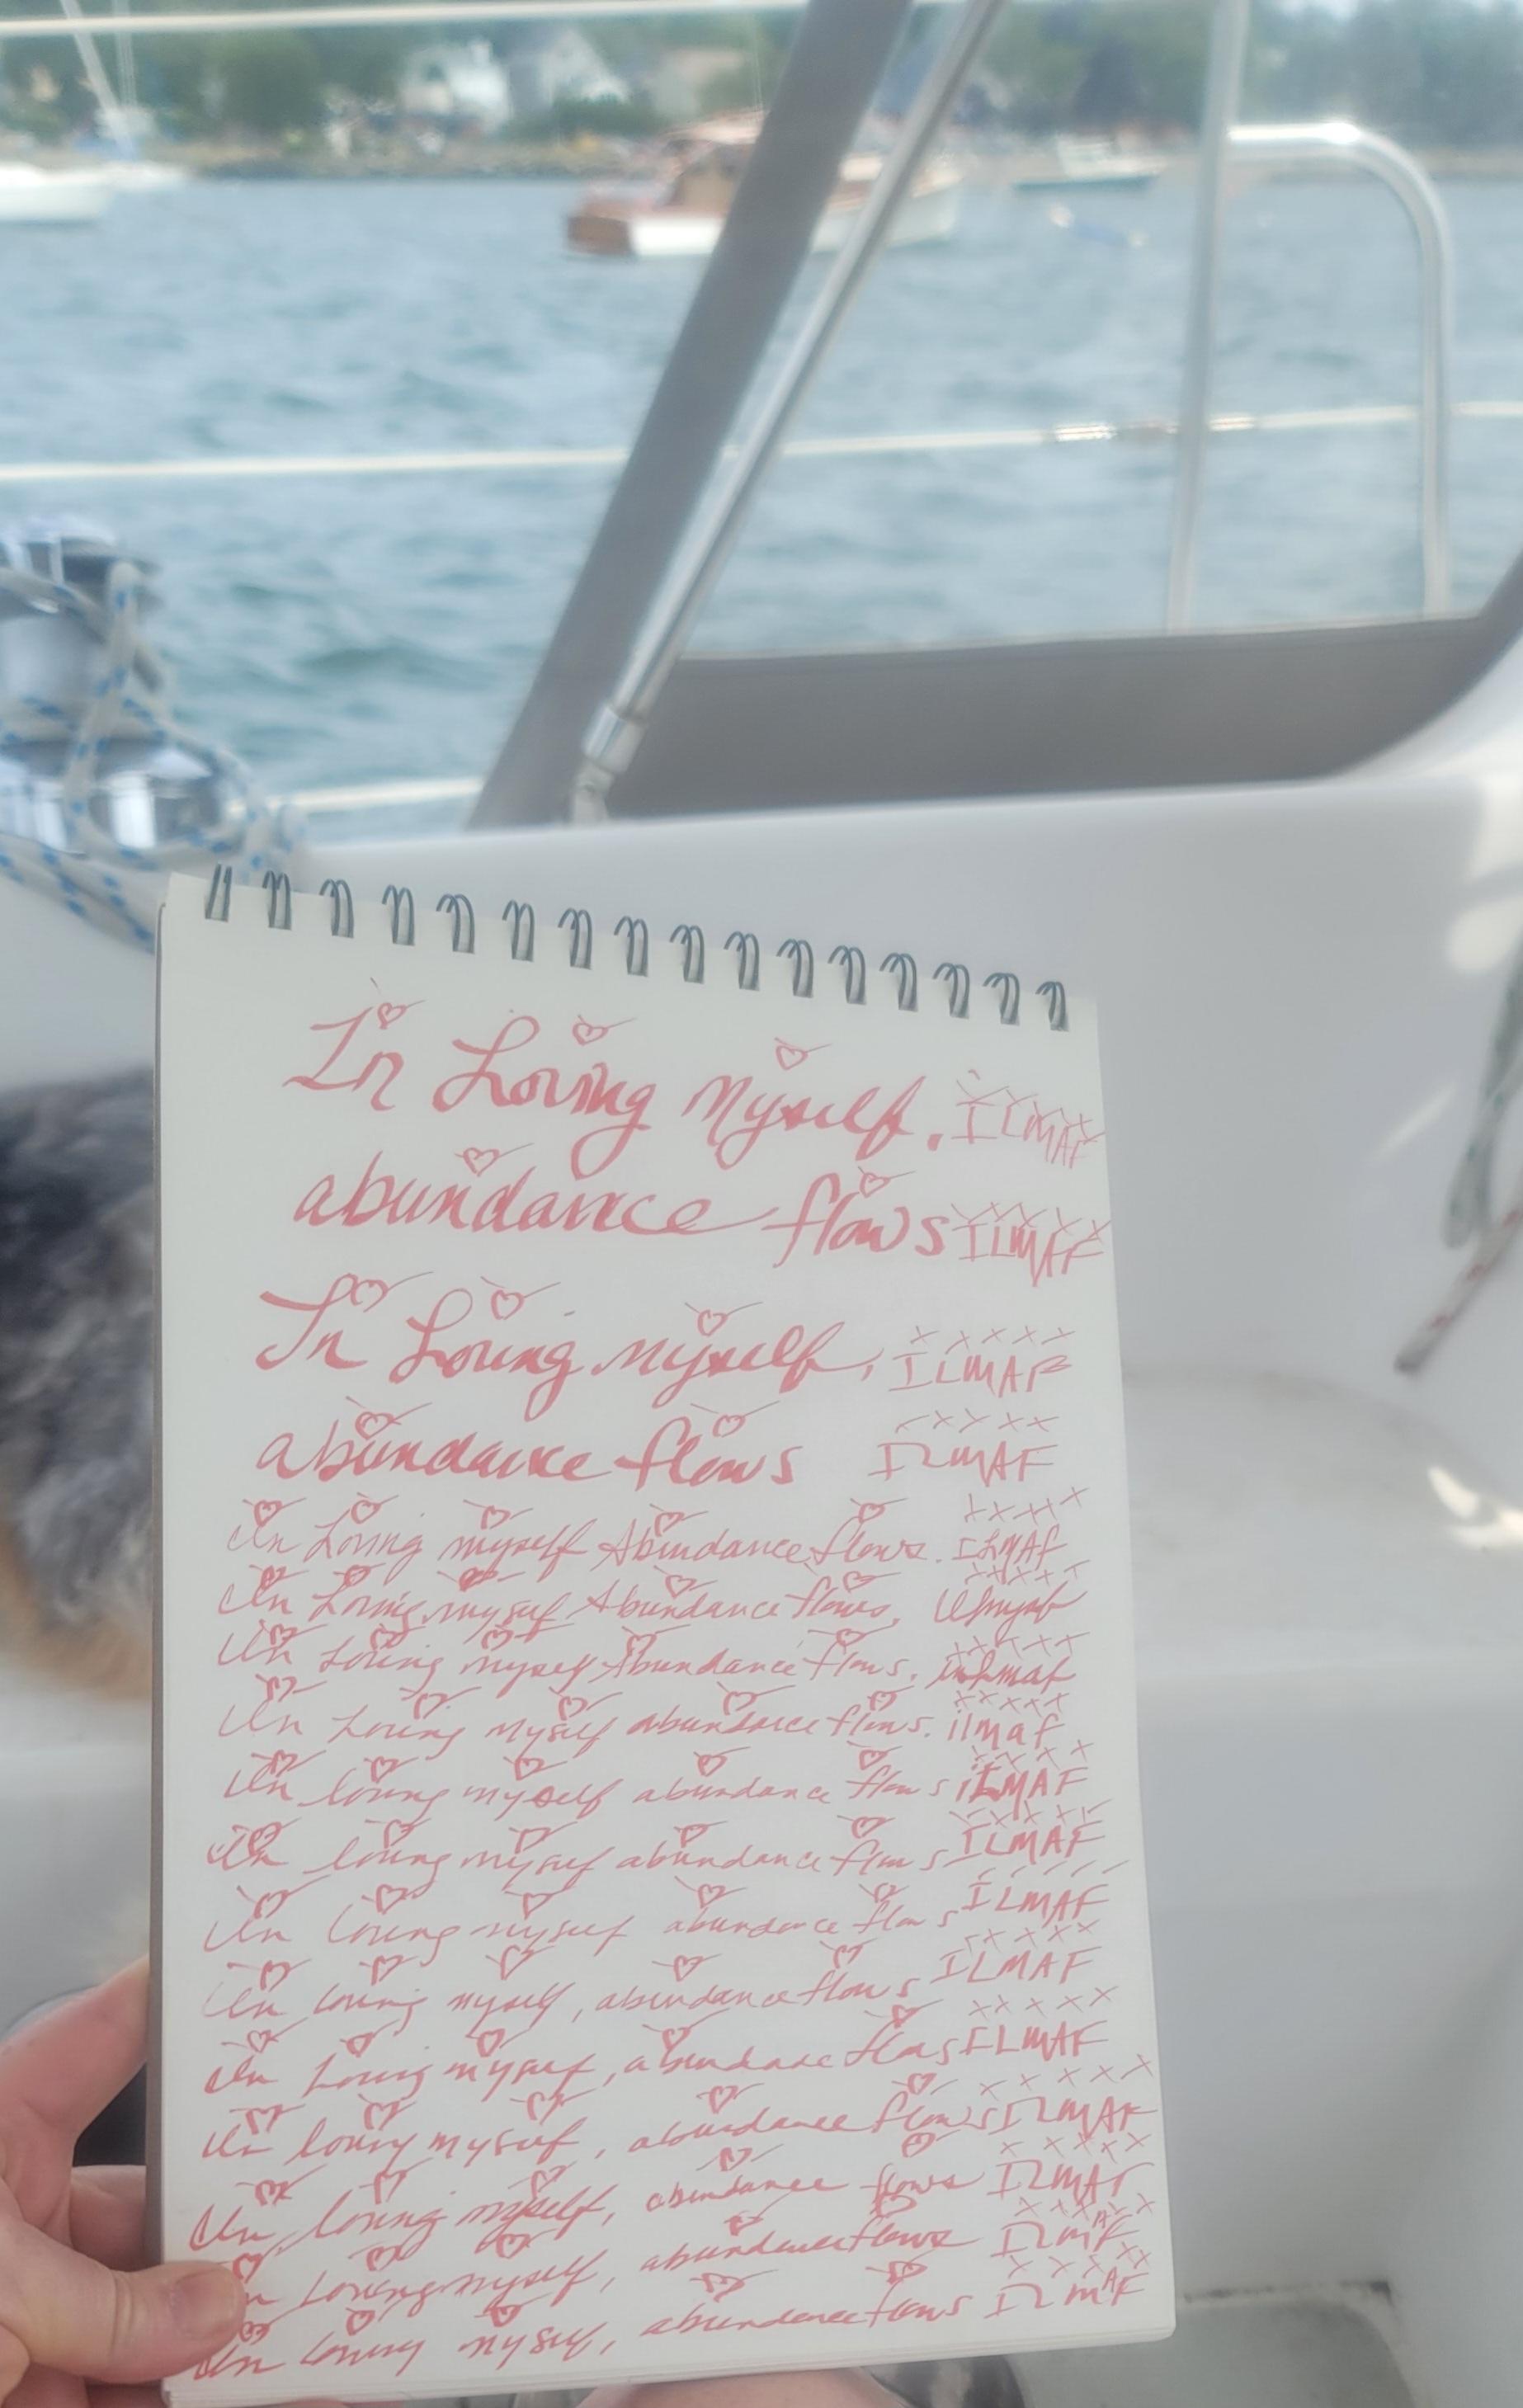 In Loving Myself, ILMAF
abundance flows ILMAF
In Loving myself, ILMAF
abundance flows ILMAF
In Loving myself Abundance flows. ILMAF
In Loving myself Abundance flows.
In Loving myself Abundance flows.
In Loving myself abundance flows. ilmaf
In loving myself abundance flows ILMAF
In loving myself abundance flows ILMAF
In loving myself abundance flows ILMAF
In loving myself, abundance flows ILMAF
In Loving myself, abundance flows ILMAF
In loving myself, abundance flows ILMAF
In loving myself, abundance flows ILMAF
In Loving myself, abundance flows ILMAF
In loving myself, abundance flows ILMAF